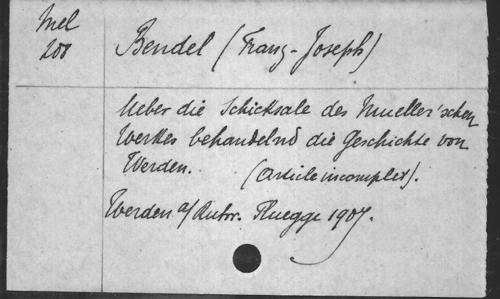 Mel
200
Bendel (Franz-Joseph)
Ueber die Schicksale des Mueller'schen
Werkes behandelnd die Geschichte von
Werden. (Article incomplet).
Werden a/Ruhr. Fluegge 1907.